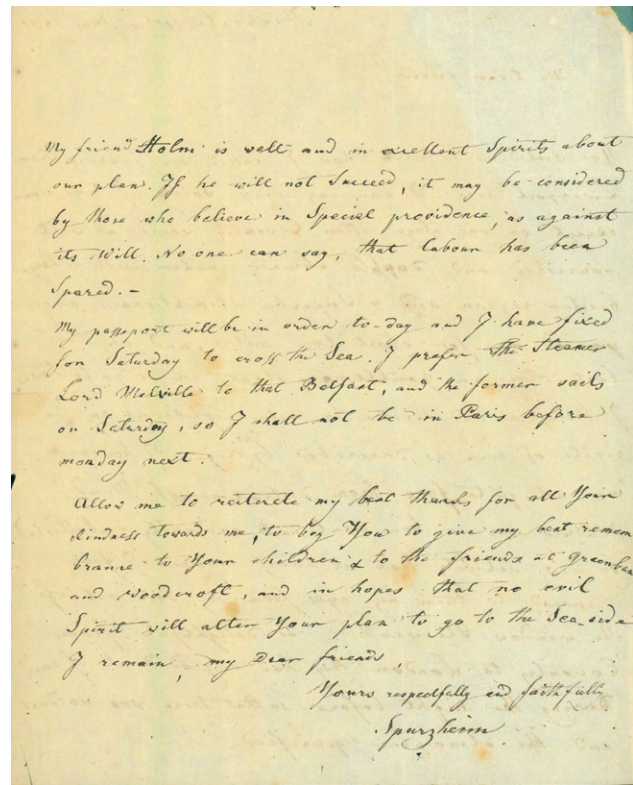 My friend Holm is well and in excellent Spirits about
our plan. If he will not Succeed, it may be considered
by those who believe in Special providence, as against
its Will. No one can say, that labour has been
Spared. –
My passport will be in order to-day and I have fixed
for Saturday to cross the Sea. I prefer the Steamer
Lord Melville to that Belfast, and the former sails
on Saturday, so I shall not be in Paris before
monday next.
Allow me to reiterate my best thanks for all Your
kindness towards me, to beg You to give my best remem
brance to Your children & to the friends at Greenban
and Woodcroft, and in hopes that no evil
Spirit will alter Your plan to go to the Sea-side
I remain, my Dear friends,
Yours respectfully and faithfully
Spurzheim